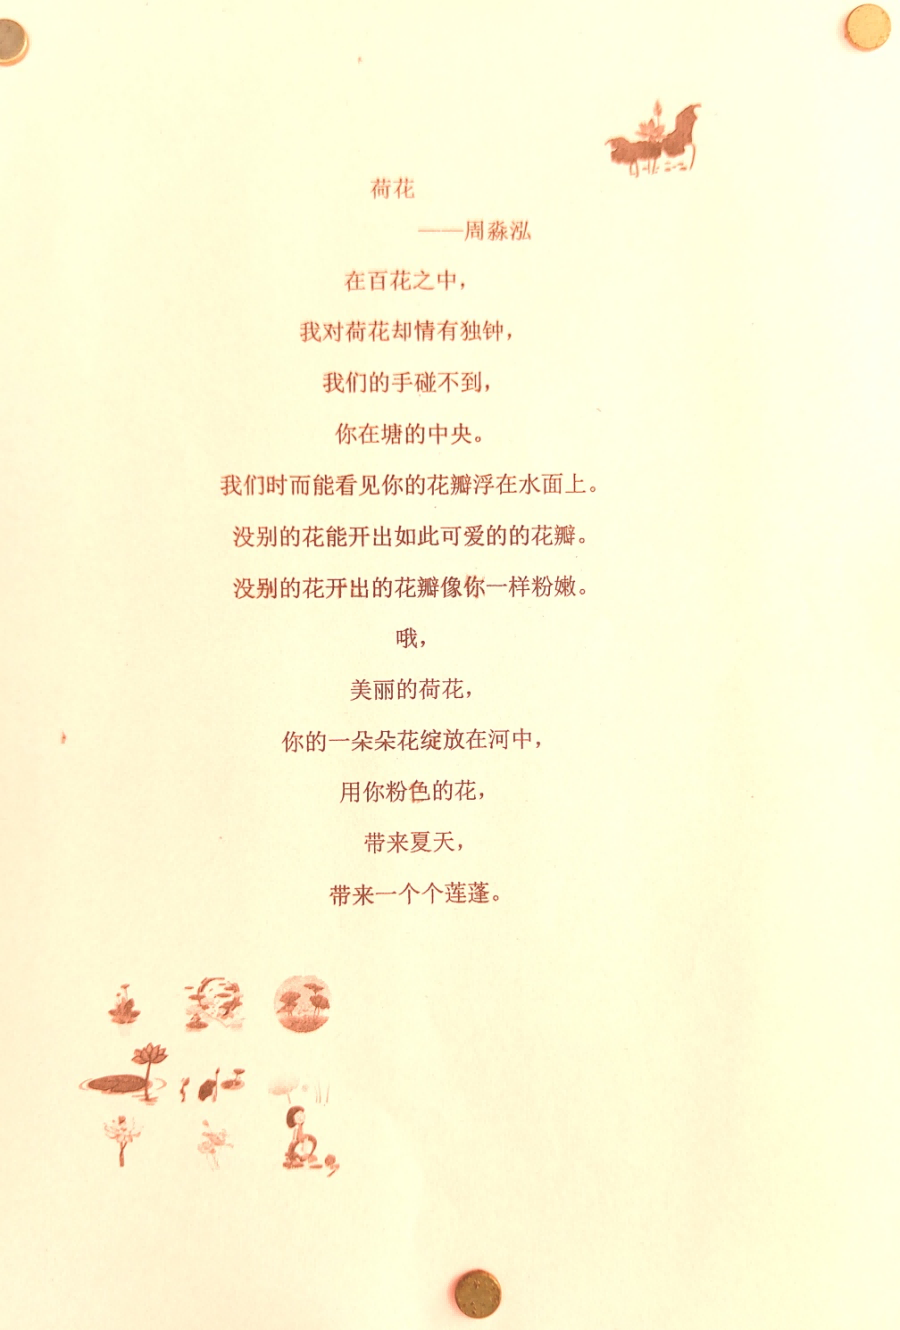 荷花
——周淼泓
在百花之中，
我对荷花却情有独钟，
我们的手碰不到，
你在塘的中央。
我们时而能看见你的花瓣浮在水面上。
没别的花能开出如此可爱的的花瓣。
没别的花开出的花瓣像你一样粉嫩。
哦，
美丽的荷花，
你的一朵朵花绽放在河中，
用你粉色的花，
带来夏天，
带来一个个莲蓬。